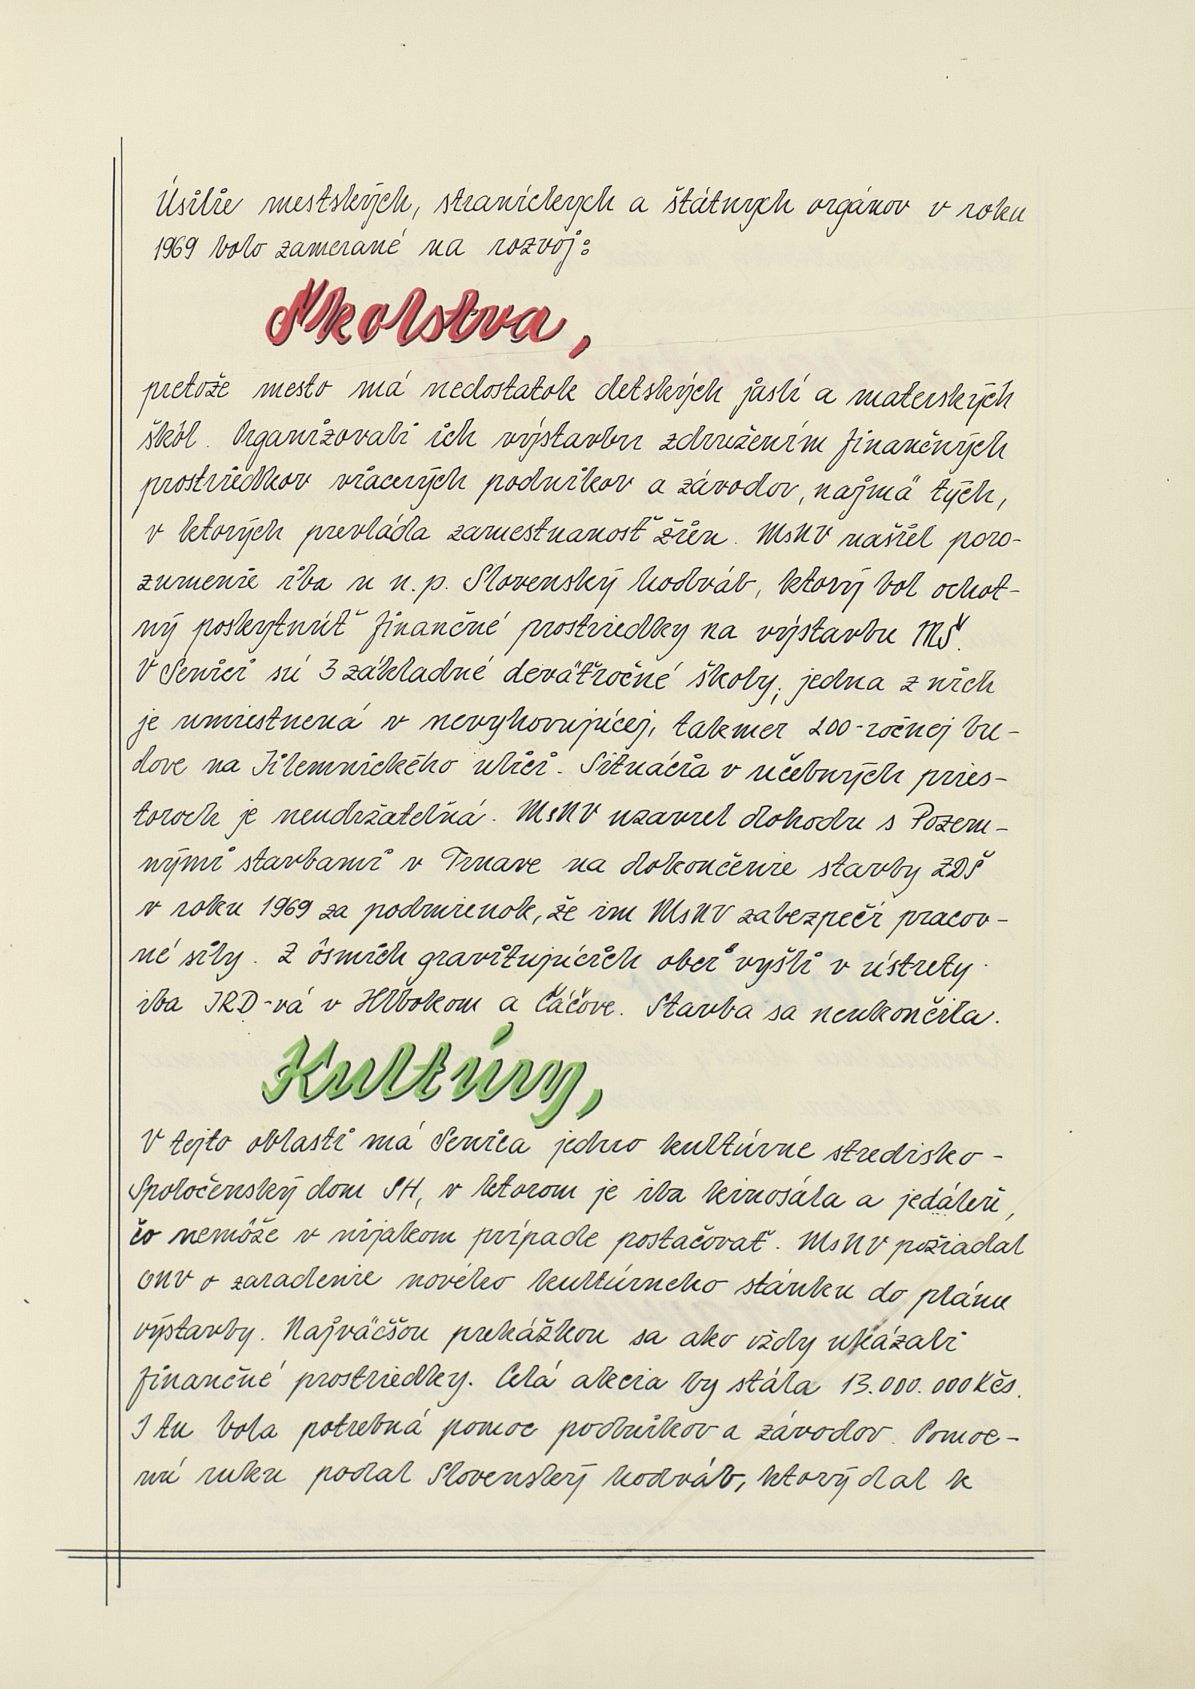 Úsilie mestských, straníckych a štátnych orgánov v roku
1969 bolo zamerané na rozvoj:
Školstva,
pretože mesto má nedostatok detských jaslí a materských
škôl. Organizovali ich výstavbu združením finančných
prostriedkov viacerých podnikov a závodov, najmä tých,
v ktorých prevláda zamestnanosť žien. MsNV našiel poro-
zumenie iba u n.p. Slovenský hodváb, ktorý bol ochot-
ný poskytnúť finančné prostriedky na výstavbu MŠ.
V Senici sú 3 základné deväťročné školy, jedna z nich
je umiestnená v nevyhovujúcej, takmer 200-ročnej bu-
dove na Jilemnického ulici. Situácia v učebných pries-
toroch je neudržateľná. MsNV uzavrel dohodu s Pozem-
nými stavbami v Trnave na dokončenie stavby ZDŠ
v roku 1969 za podmienok, že im MsNV zabezpečí pracov-
né sily. Z ôsmich gravitujúcich obcí vyšli v ústrety
iba JRD-vá v Hlbokom a Čáčove. Stavba sa neukončila.
Kultúry,
V tejto oblasti má Senica jedno kultúrne stredisko -
Spoločenský dom SH, v ktorom je iba kinosála a jedáleň,
čo nemôže v nijakom prípade postačovať. MsNV požiadal
ONV o zaradenie nového kultúrneho stánku do plánu
výstavby. Najväčšou prekážkou sa ako vždy ukázali
finančné prostriedky. Celá akcia by stála 13.000.000 Kčs.
I tu bola potrebná pomoc podnikov a závodov. Pomoc-
nú ruku podal Slovenský hodváb, ktorý dal k